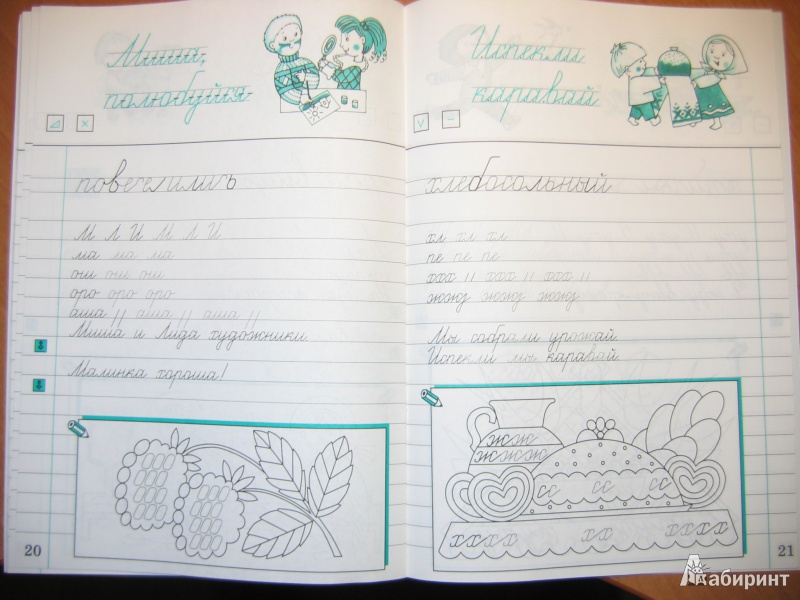 Миша,
полюбуйся.
повеселились
М Л И М Л И
ма ма ма
ши ши ши
оро оро оро
аша ,, аша ,, аша ,,
Миша и Лида художники.
Малинка хороша!
20
Испекли
каравай.
хлебосольный
хл хл хл
пе пе пе
ххх ,, ххх ,, ххх ,,
жжж жжж жжж
Мы собрали урожай.
Испекли мы каравай.
жжж
жжжж
сс сс сс
хххх хх хххх
21
Лабиринт